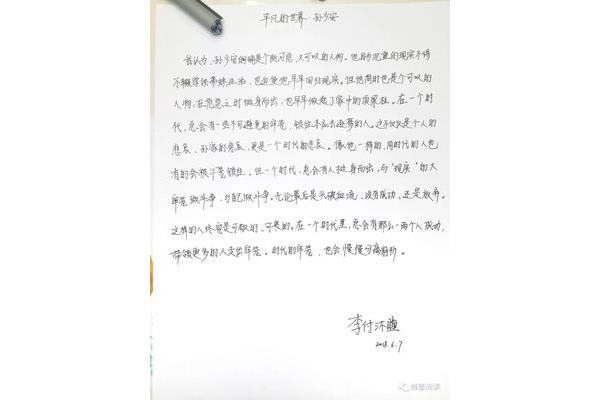 平凡的世界 孙少安
我认为,孙少安的确是个既可悲,又可叹的人物。他因沉重的现实不得
不辍学供弟妹上学,也迫使他早早回归现实。但他同时也是个可叹的
人物,在危急之时挺身而出,也早早做起了家中的顶梁柱。在一个时
代,总会有一些不可避免的牢笼,锁住本应去逐梦的人。这不仅仅是个人的
悲哀、孙家的悲哀,更是一个时代的悲哀。像他一样的,同时代的人也
有的会被牢笼锁住。但一个时代,总会有人挺身而出,与“现实”的大
牢笼做斗争,与自己做斗争。无论最后是头破血流、没有成功,还是放弃。
这样的人终究是可敬的、可畏的。在一个时代里,总会有那么一两个人成功,
带领更多的人走出牢笼。时代的牢笼,也会慢慢分离崩析。
李付沐
2018.6.7
阅读